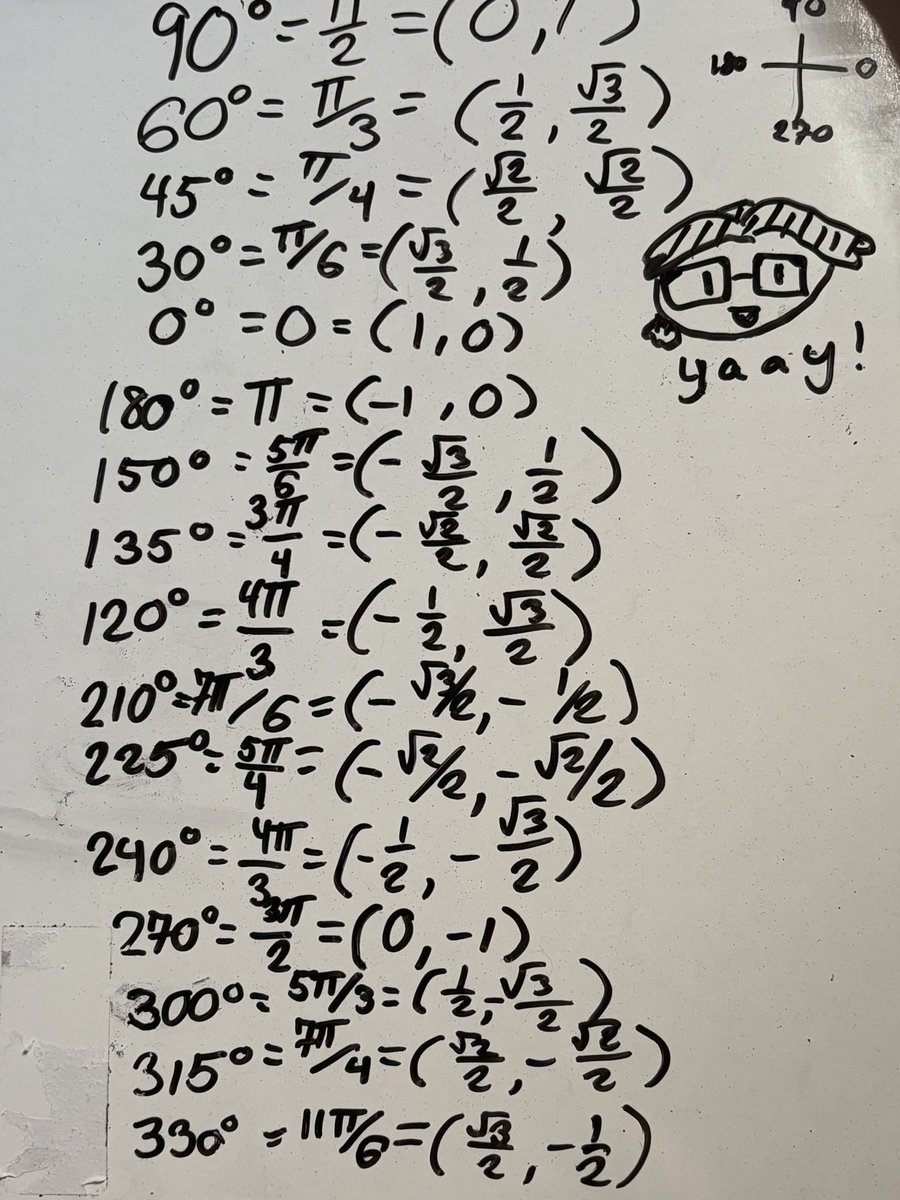 90° = π/2 = (0, 1)
90
180 0
270
60° = π/3 = (1/2, √3/2)
45° = π/4 = (√2/2, √2/2)
30° = π/6 = (√3/2, 1/2)
0° = 0 = (1, 0)
yaay!
180° = π = (-1, 0)
150° = 5π/6 = (-√3/2, 1/2)
135° = 3π/4 = (-√2/2, √2/2)
120° = 4π/3 = (-1/2, √3/2)
210° = 7π/6 = (-√3/2, -1/2)
225° = 5π/4 = (-√2/2, -√2/2)
240° = 4π/3 = (-1/2, -√3/2)
270° = 3π/2 = (0, -1)
300° = 5π/3 = (1/2, -√3/2)
315° = 7π/4 = (√2/2, -√2/2)
330° = 11π/6 = (√3/2, -1/2)